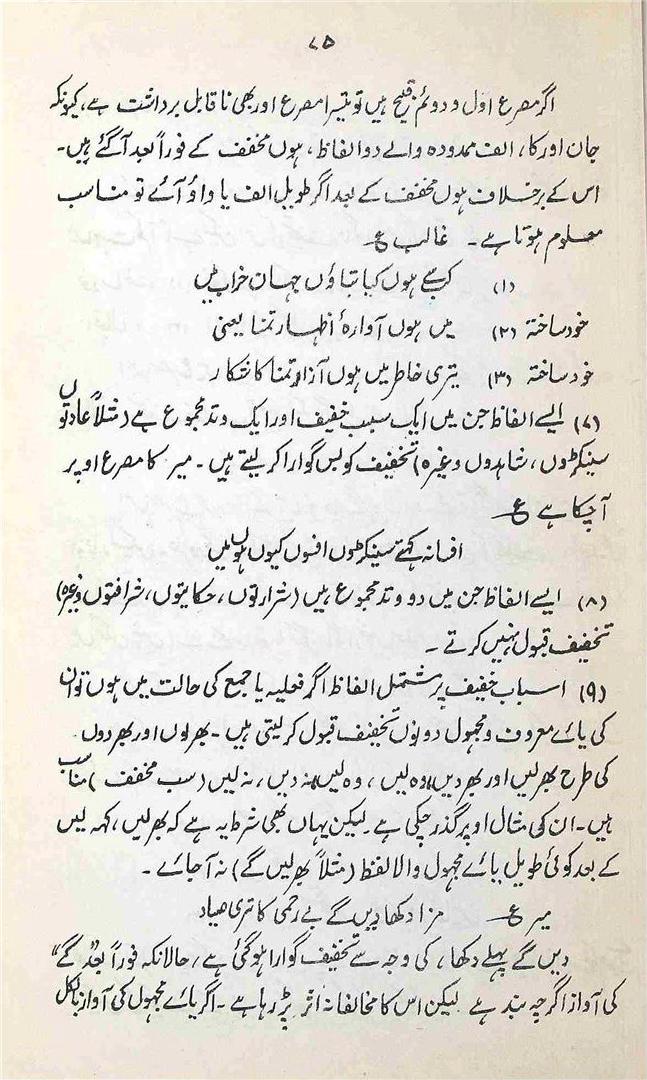 ۷۵
اگر مصرع اوّل و دوئم قبیح ہیں تو تیسرا مصرع اور بھی ناقابل برداشت ہے، کیونکہ
جان اور کا، الف ممدودہ والے دو الفاظ، ہوں مخفف کے فوراً بعد آگئے ہیں۔
اس کے برخلاف ہوں مخفف کے بعد اگر طویل الف یا واؤ آئے تو مناسب
معلوم ہوتا ہے۔ غالب ع
(۱) کب سے ہوں کیا بتاؤں جہان خراب میں
خود ساختہ (۲) میں ہوں آوارۂ اظہار تمنا یعنی
خود ساختہ (۳) تیری خاطر میں ہوں آزار تمنا کا شکار
(۷) ایسے الفاظ جن میں ایک سبب خفیف اور ایک وتد مجموع ہے (مثلاً عادتوں
سینکڑوں، شاہدوں وغیرہ) تخفیف کو بس گوارا کر لیتے ہیں۔ میر کا مصرع اوپر
آچکا ہے ع
افسانہ کہتے سینکڑوں افسوں کیوں ہوں میں
(۸) ایسے الفاظ جن میں دو وتد مجموع ہیں (شرارتوں، حکایتوں، شرافتوں وغیرہ)
تخفیف قبول نہیں کرتے۔
(۹) اسباب خفیف پر مشتمل الفاظ اگر فعلیہ یا جمع کی حالت میں ہوں تو ان
کی یائے معروف و مجہول دونوں تخفیف قبول کر لیتی ہیں۔ بھر لوں اور بھر دوں
کی طرح بھر لیں اور بھر دیں، وہ لیں، وہ لیں، نہ دیں، نہ لیں (سب مخفف) مناسب
ہیں۔ ان کی مثال اوپر گذر چکی ہے لیکن یہاں بھی شرط یہ ہے کہ بھر لیں، کہہ لیں
کے بعد کوئی طویل یائے مجہول والا لفظ (مثلاً بھر لیں گے) نہ آجائے۔
میر ع مزا دکھا دیں گے بے رحمی کا تری صیاد
دیں گے پہلے دکھا، کی وجہ سے تخفیف گوارا ہوگئی ہے، حالانکہ فوراً بعد "گے"
کی آواز اگرچہ بند ہے لیکن اس کا مخالفانہ اثر پڑ رہا ہے۔ اگر یائے مجہول کی آواز بالکل